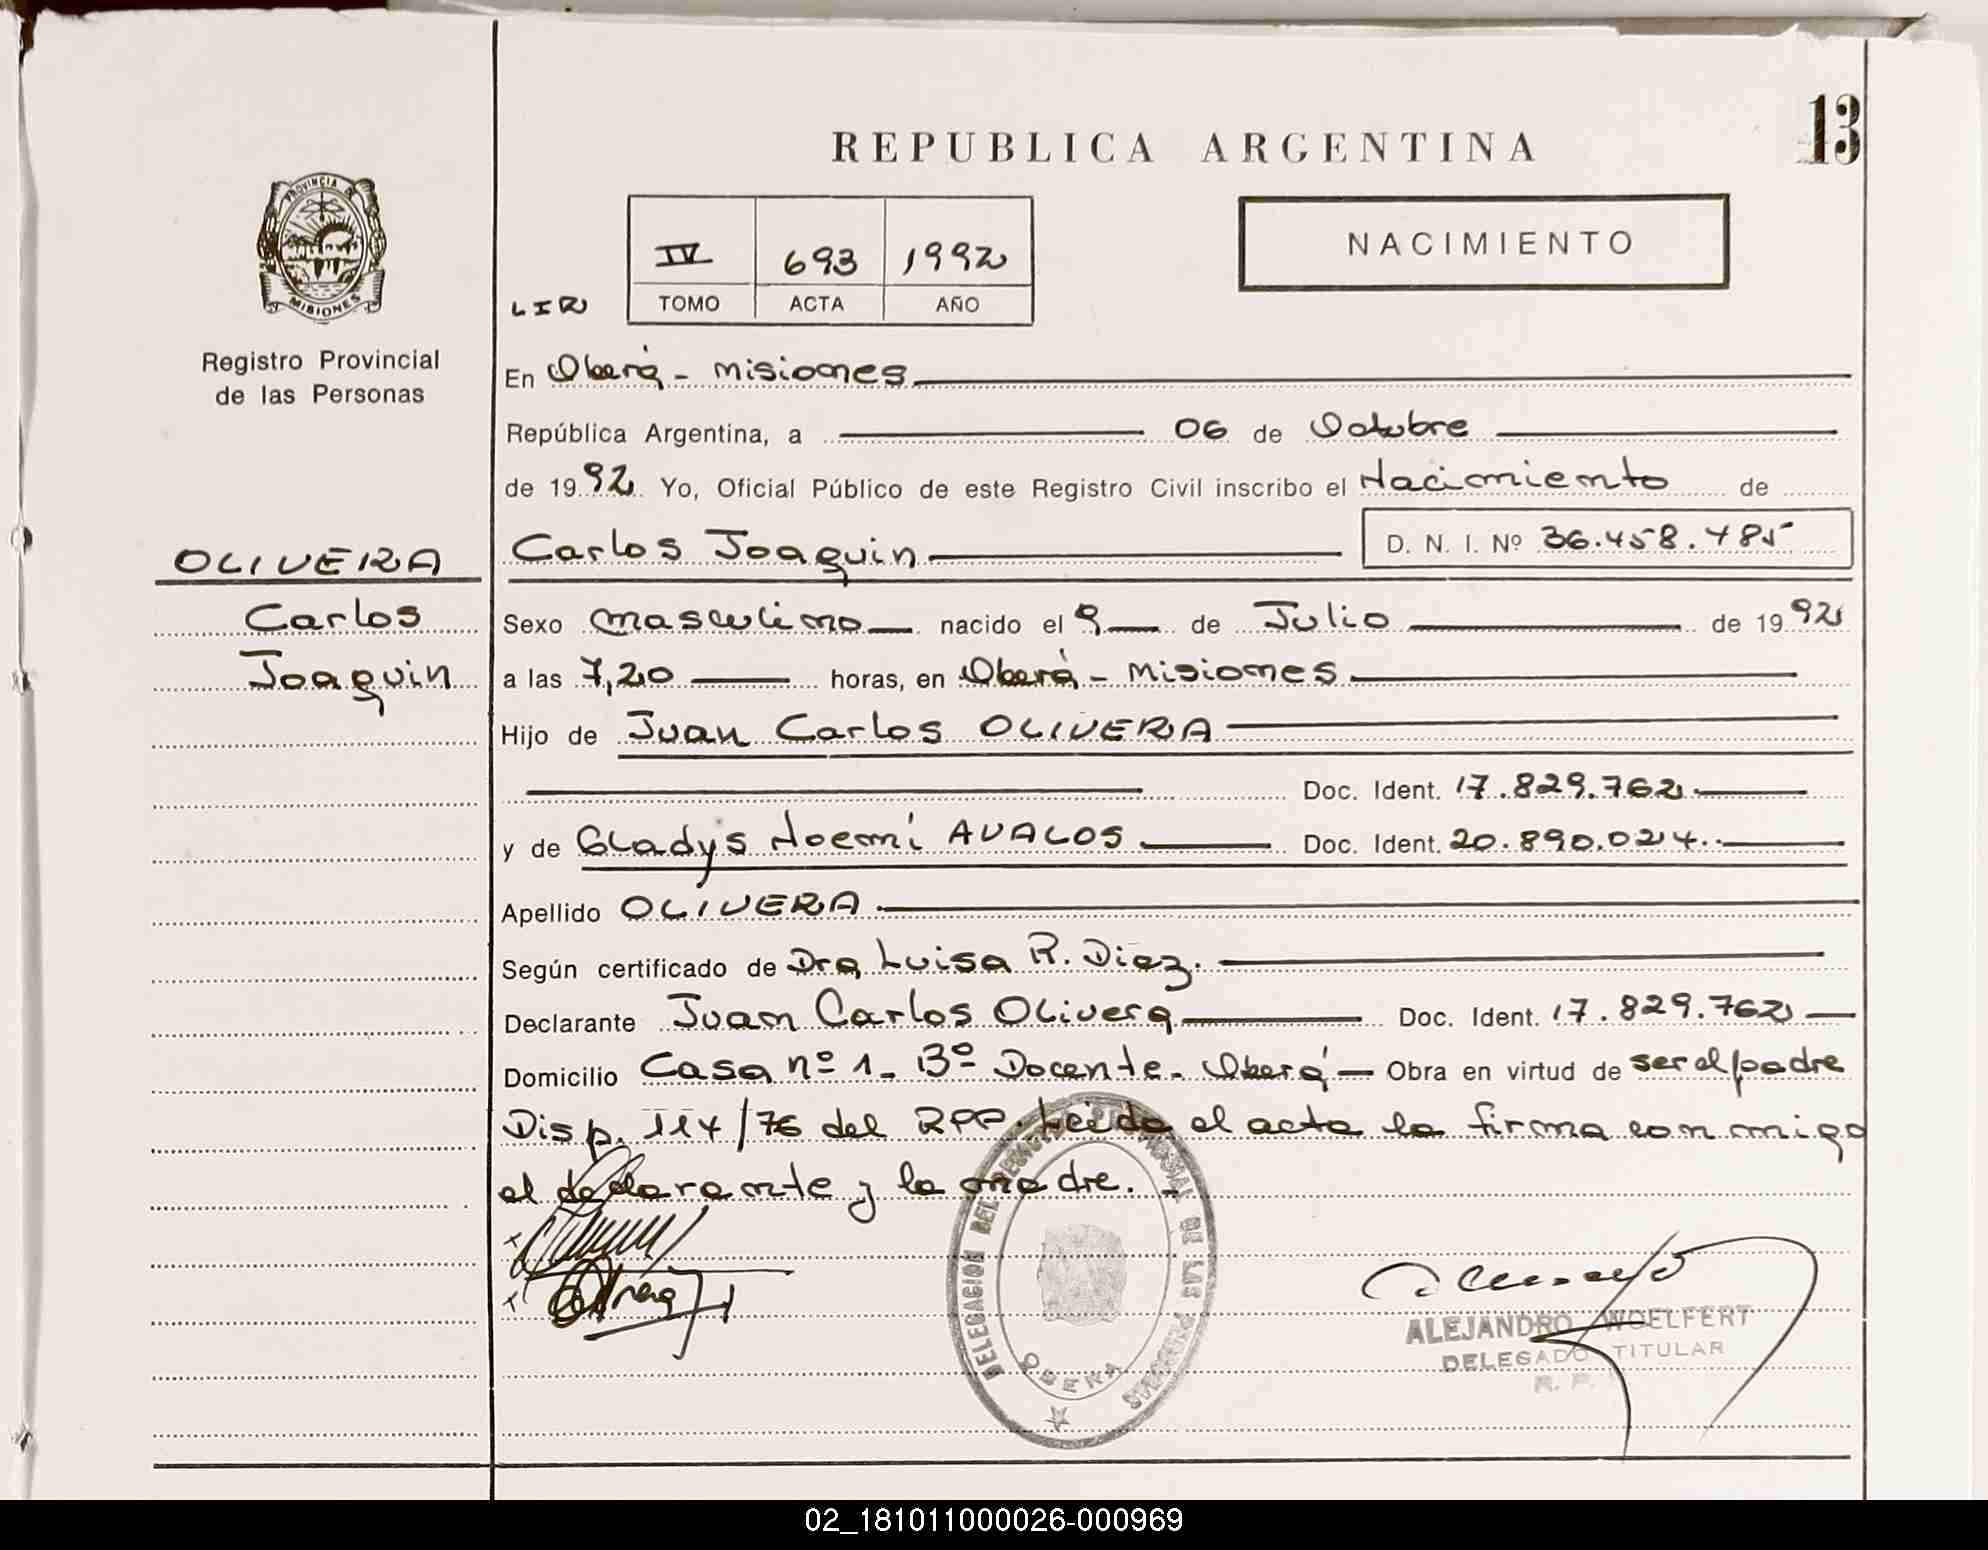 13
REPUBLICA ARGENTINA
PROVINCIA DE
MISIONES
NACIMIENTO
IV 693 1992
TOMO ACTA AÑO
Registro Provincial
de las Personas
En Oberá - Misiones
República Argentina, a 06 de Octubre
de 1992 Yo, Oficial Público de este Registro Civil inscribo el Nacimiento de
OLIVEIRA
Carlos Joaquin D. N. I. Nº 36.458.485
Carlos
Sexo masculino nacido el 9 de Julio de 1992
Joaquin
a las 7,20 horas, en Oberá - Misiones
Hijo de Juan Carlos OLIVERA
Doc. Ident. 17.829.762
y de Gladys Noemí AVALOS Doc. Ident. 20.890.024.
Apellido OLIVERA
Según certificado de Dra Luisa R. Diez.
Declarante Juan Carlos Olivera Doc. Ident. 17.829.762
Domicilio Casa nº 1 - Bº Docente - Oberá - Obra en virtud de ser el padre
Disp. 114/76 del RPP. Leida el acta la firma conmigo
el declarante y la madre. -
DELEGACION DEL REGISTRO PROVINCIAL DE LAS PERSONAS
OBERA
ALEJANDRO WOELFERT
DELEGADO TITULAR
R. P.
02_181011000026-000969